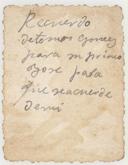 Recuerdo
detomas Gomez
para mi primo
Jose para
que seacuerde
demi